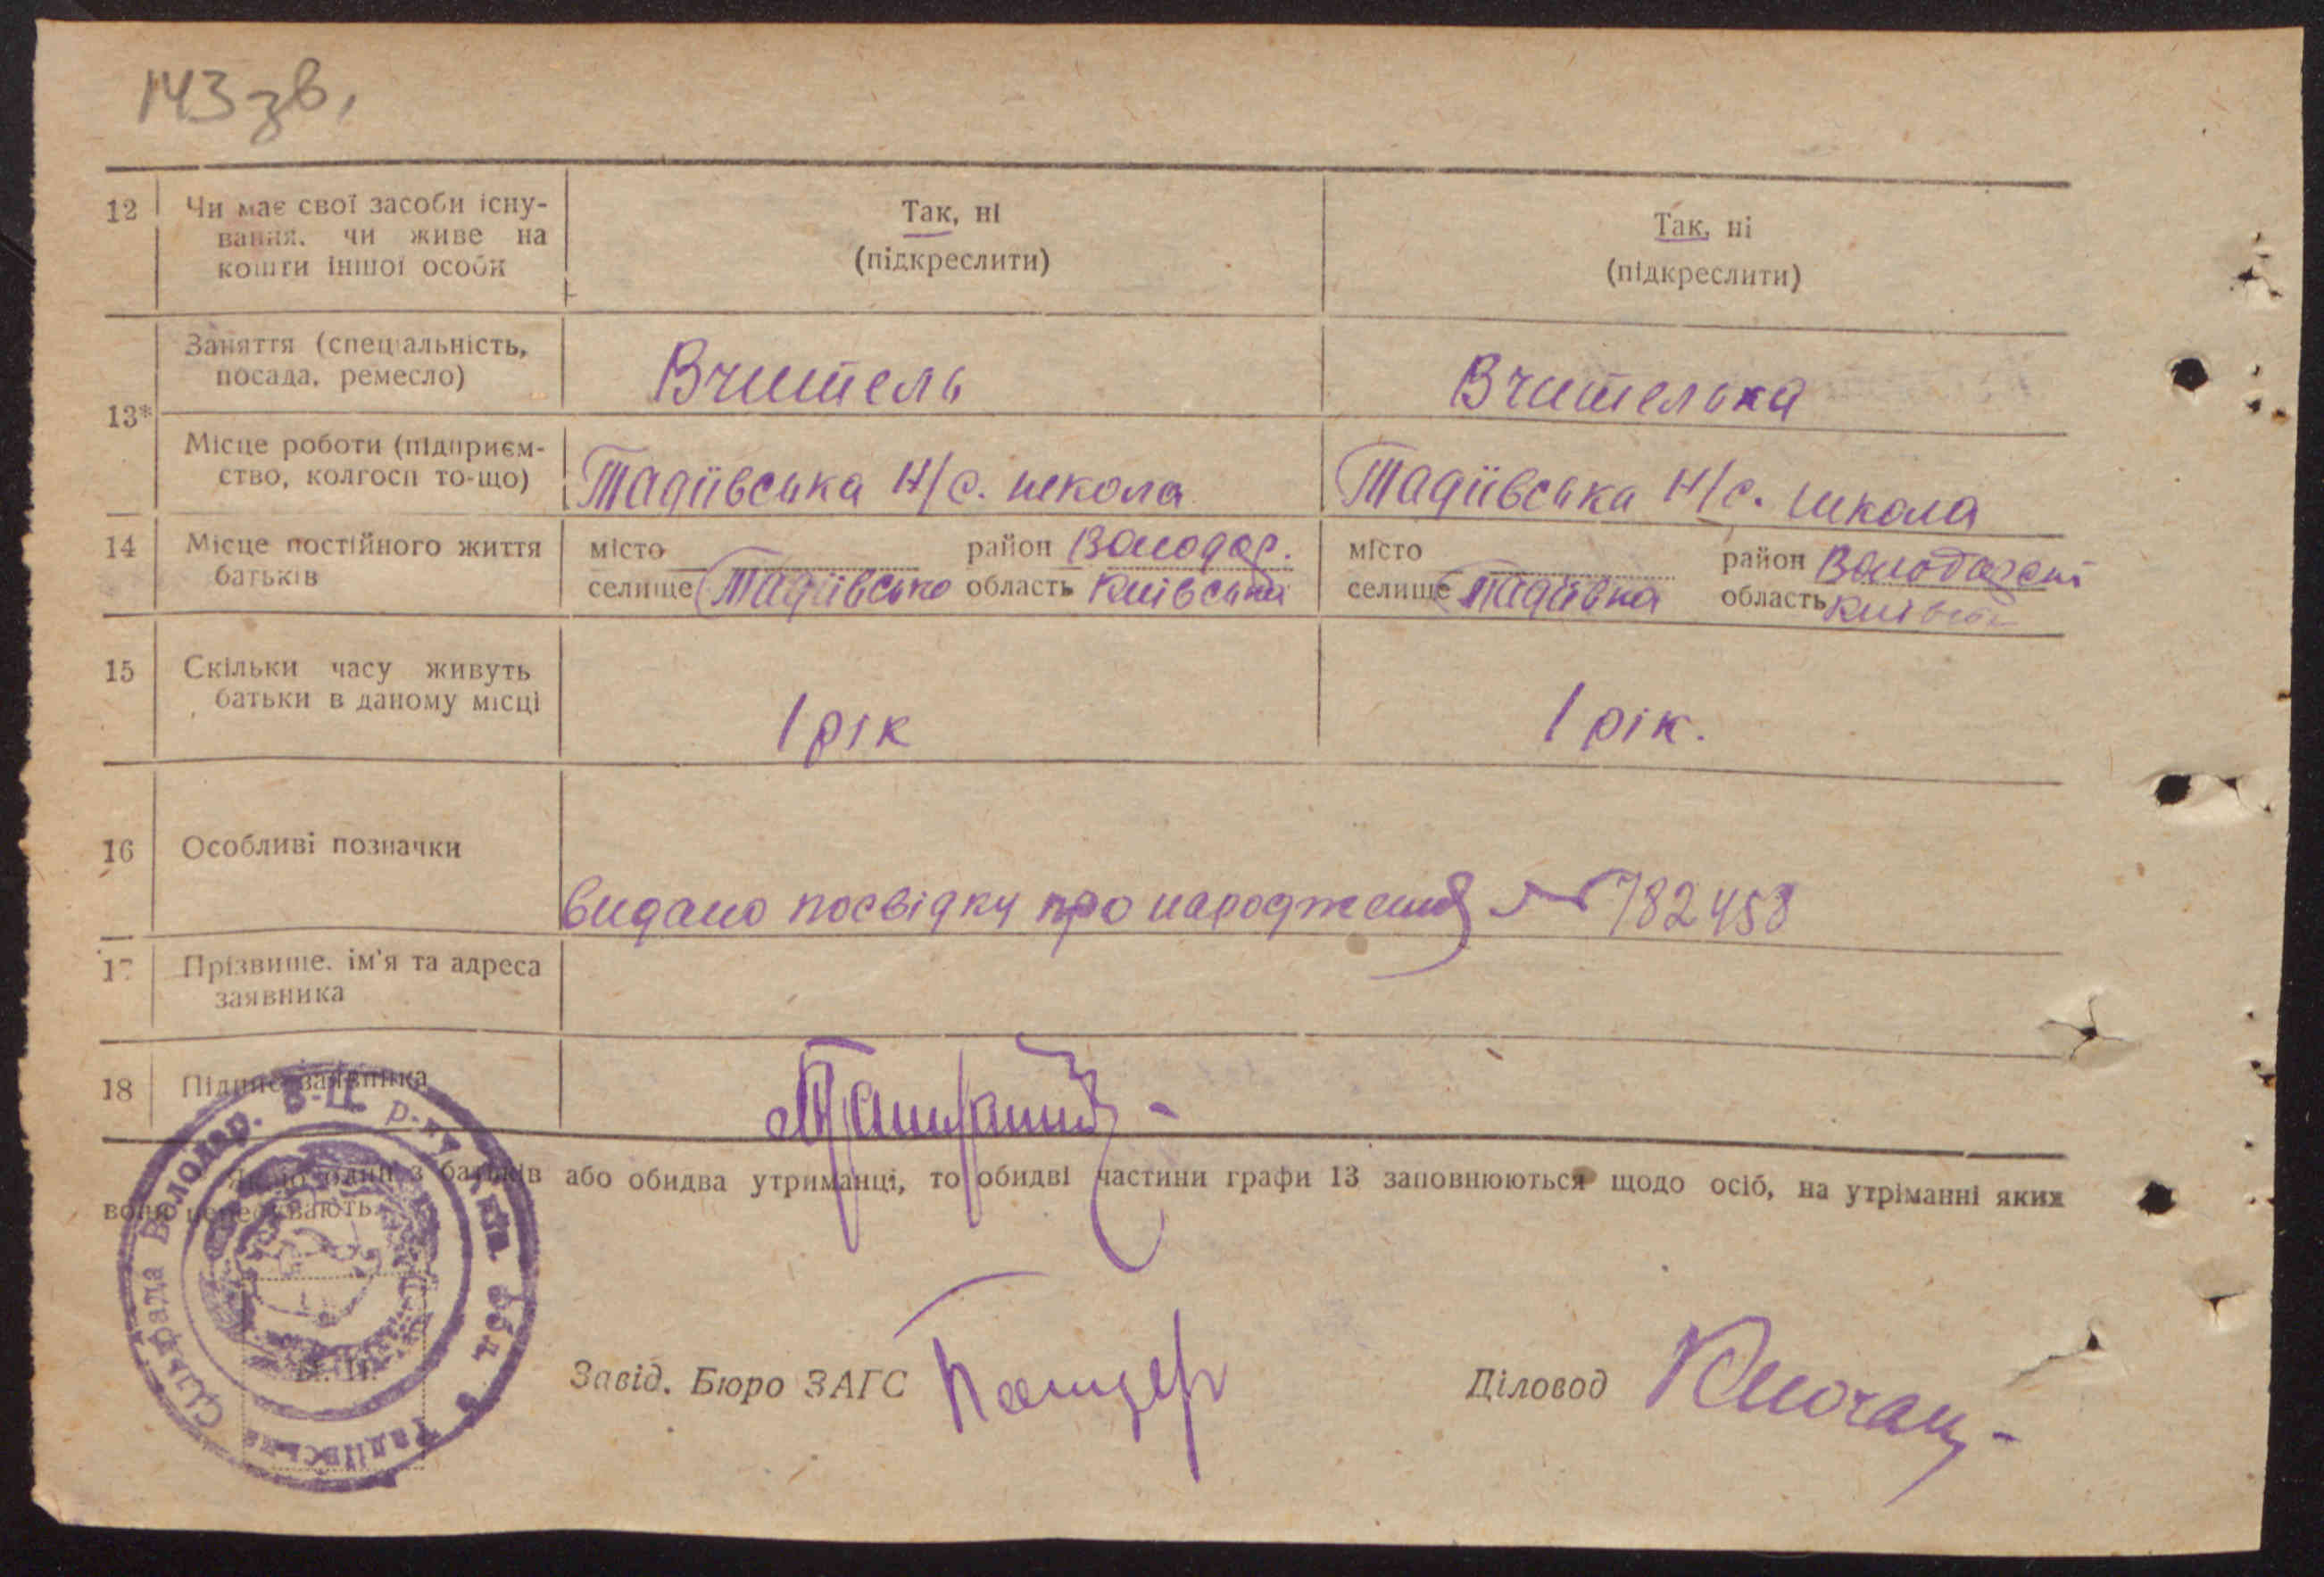 143 зв.
12 Чи має свої засоби існу-
вання, чи живе на
кошти іншої особи
Так, ні
(підкреслити)
Так, ні
(підкреслити)
13*
Заняття (спеціальність,
посада, ремесло)
Вчитель
Вчителька
Місце роботи (підприєм-
ство, колгосп то-що)
Тадіївська Н/с. школа
Тадіївська Н/с. школа
14 Місце постійного життя
батьків
місто район Володар.
селище Тадіївсько область Київська
місто район Володарськ
селище Тадіївка область Київськ
15 Скільки часу живуть
батьки в даному місці
1 рік
1 рік.
16 Особливі позначки
видано посвідку про народження № 782458
17 Прізвище, ім'я та адреса
заявника
18 Підпис заявника
Якщо один з батьків або обидва утриманці, то обидві частини графи 13 заповнюються щодо осіб, на утріманні яких
вони перебувають.
Завід. Бюро ЗАГС
Діловод
Тадіївська Сільрада Володар. р-ну Київ. обл